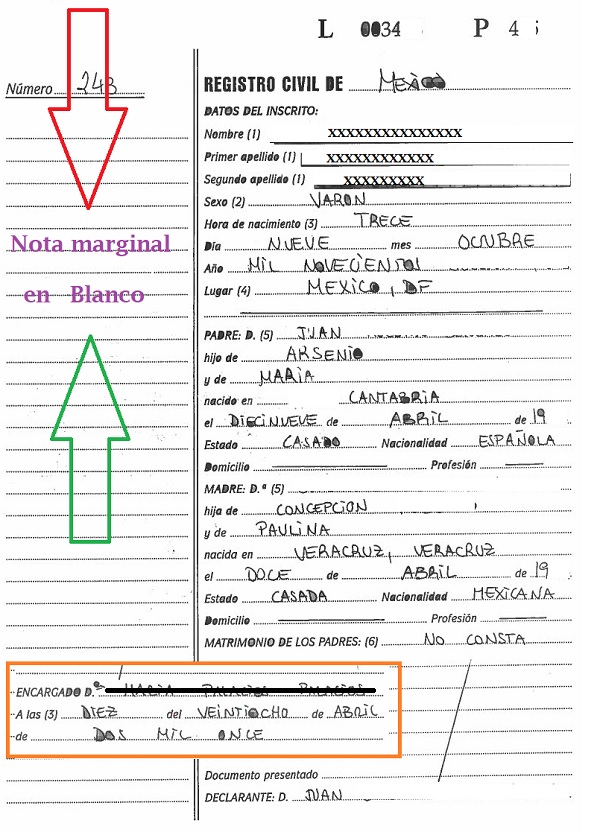 L 0034 P 4
Número 243
REGISTRO CIVIL DE MEXICO
DATOS DEL INSCRITO:
Nombre (1) XXXXXXXXXXXXXXX
Primer apellido (1) XXXXXXXXXXXX
Segundo apellido (1) XXXXXXXXX
Sexo (2) VARON
Hora de nacimiento (3) TRECE
Día NUEVE mes OCTUBRE
Año MIL NOVECIENTOS
Lugar (4) MEXICO, DF
Nota marginal
en Blanco
PADRE: D. (5) JUAN
hijo de ARSENIO
y de MARIA
nacido en CANTABRIA
el DIECINUEVE de ABRIL de 19
Estado CASADO Nacionalidad ESPAÑOLA
Domicilio Profesión
MADRE: D.ª (5)
hija de CONCEPCION
y de PAULINA
nacida en VERACRUZ, VERACRUZ
el DOCE de ABRIL de 19
Estado CASADA Nacionalidad MEXICANA
Domicilio Profesión
MATRIMONIO DE LOS PADRES: (6) NO CONSTA
ENCARGADO D.ª
A las (3) DIEZ del VEINTIOCHO de ABRIL
de DOS MIL ONCE
Documento presentado
DECLARANTE: D. JUAN